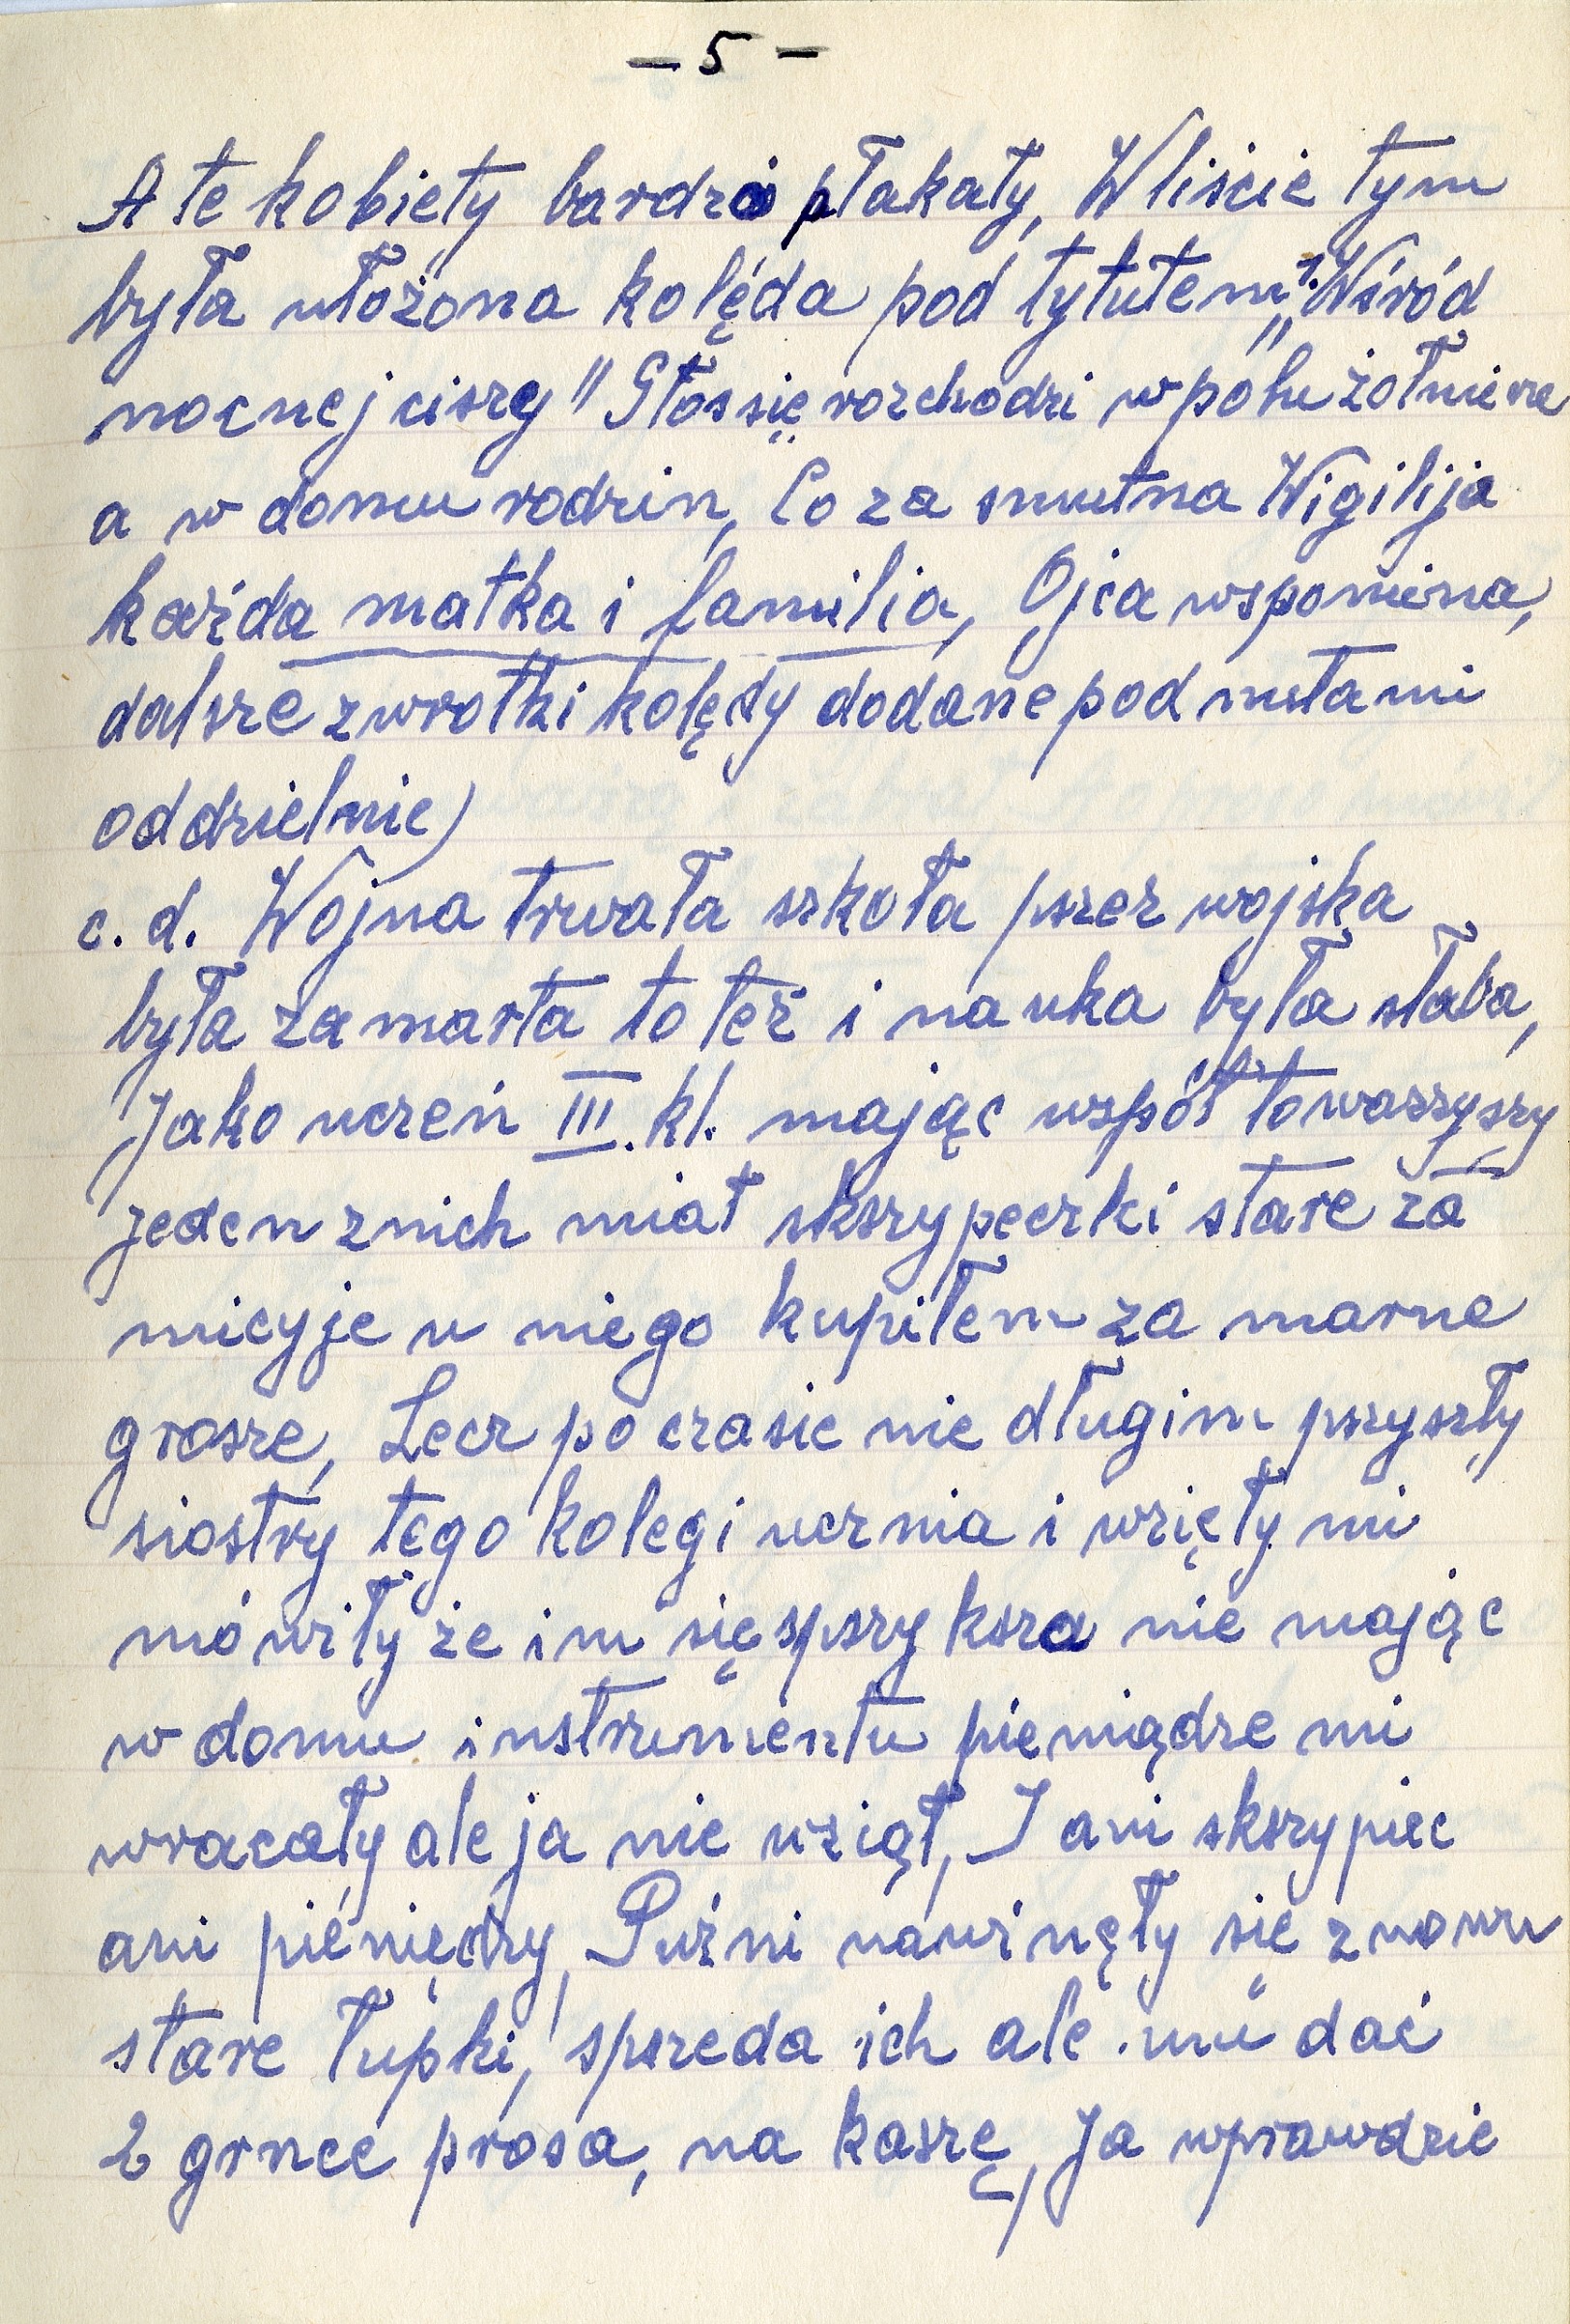 – 5 –
A te kobiety bardzo płakały, W liście tym
była ułożona kolęda pod tytułem „1. Wśród
nocnej ciszy" Głos się rozchodzi w polu żołnierze
a w domu rodzin, Co za smutna Wigilija
każda matka i familia, Ojca wspomina,
dalsze zwrotki kolędy dodane pod nutami
oddzielnie)
c. d. Wojna trwała szkoła pszez wojska
była zamarła to też i nauka była słaba,
Jako uczeń III. kl. mając współ towaszyszy
jeden znich miał skszypeczki stare za
micyje u niego kupiłem za marne
grosze, Lecz po czasie nie długim pszyszły
siostry tego kolegi ucznia i wzięły mi
mówiły że im się spszyksza nie mając
w domu instrumentu pieniądze mi
wracały ale ja nie wziął, I ani skszypiec
ani pieniędzy, Puźni nawinęły się znowu
stare łupki, spszeda ich ale mu dać
2 grnce prosa, na kaszę, Ja wprawdzie